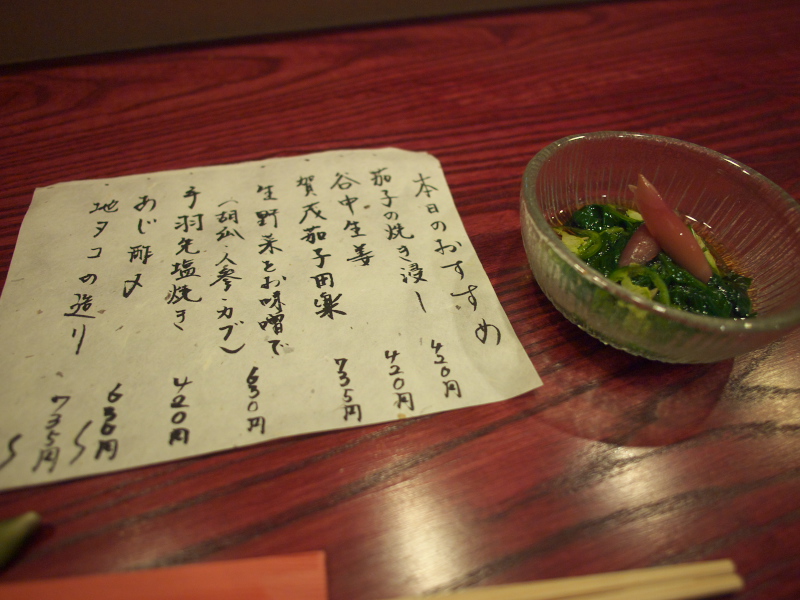 本日のおすすめ
茄子の焼き浸し 420円
谷中生姜 420円
賀茂茄子田楽 735円
生野菜とお味噌で
(胡瓜・人参・カブ) 630円
手羽先塩焼き 420円
あじ酢〆 630円
地タコの造り 735円